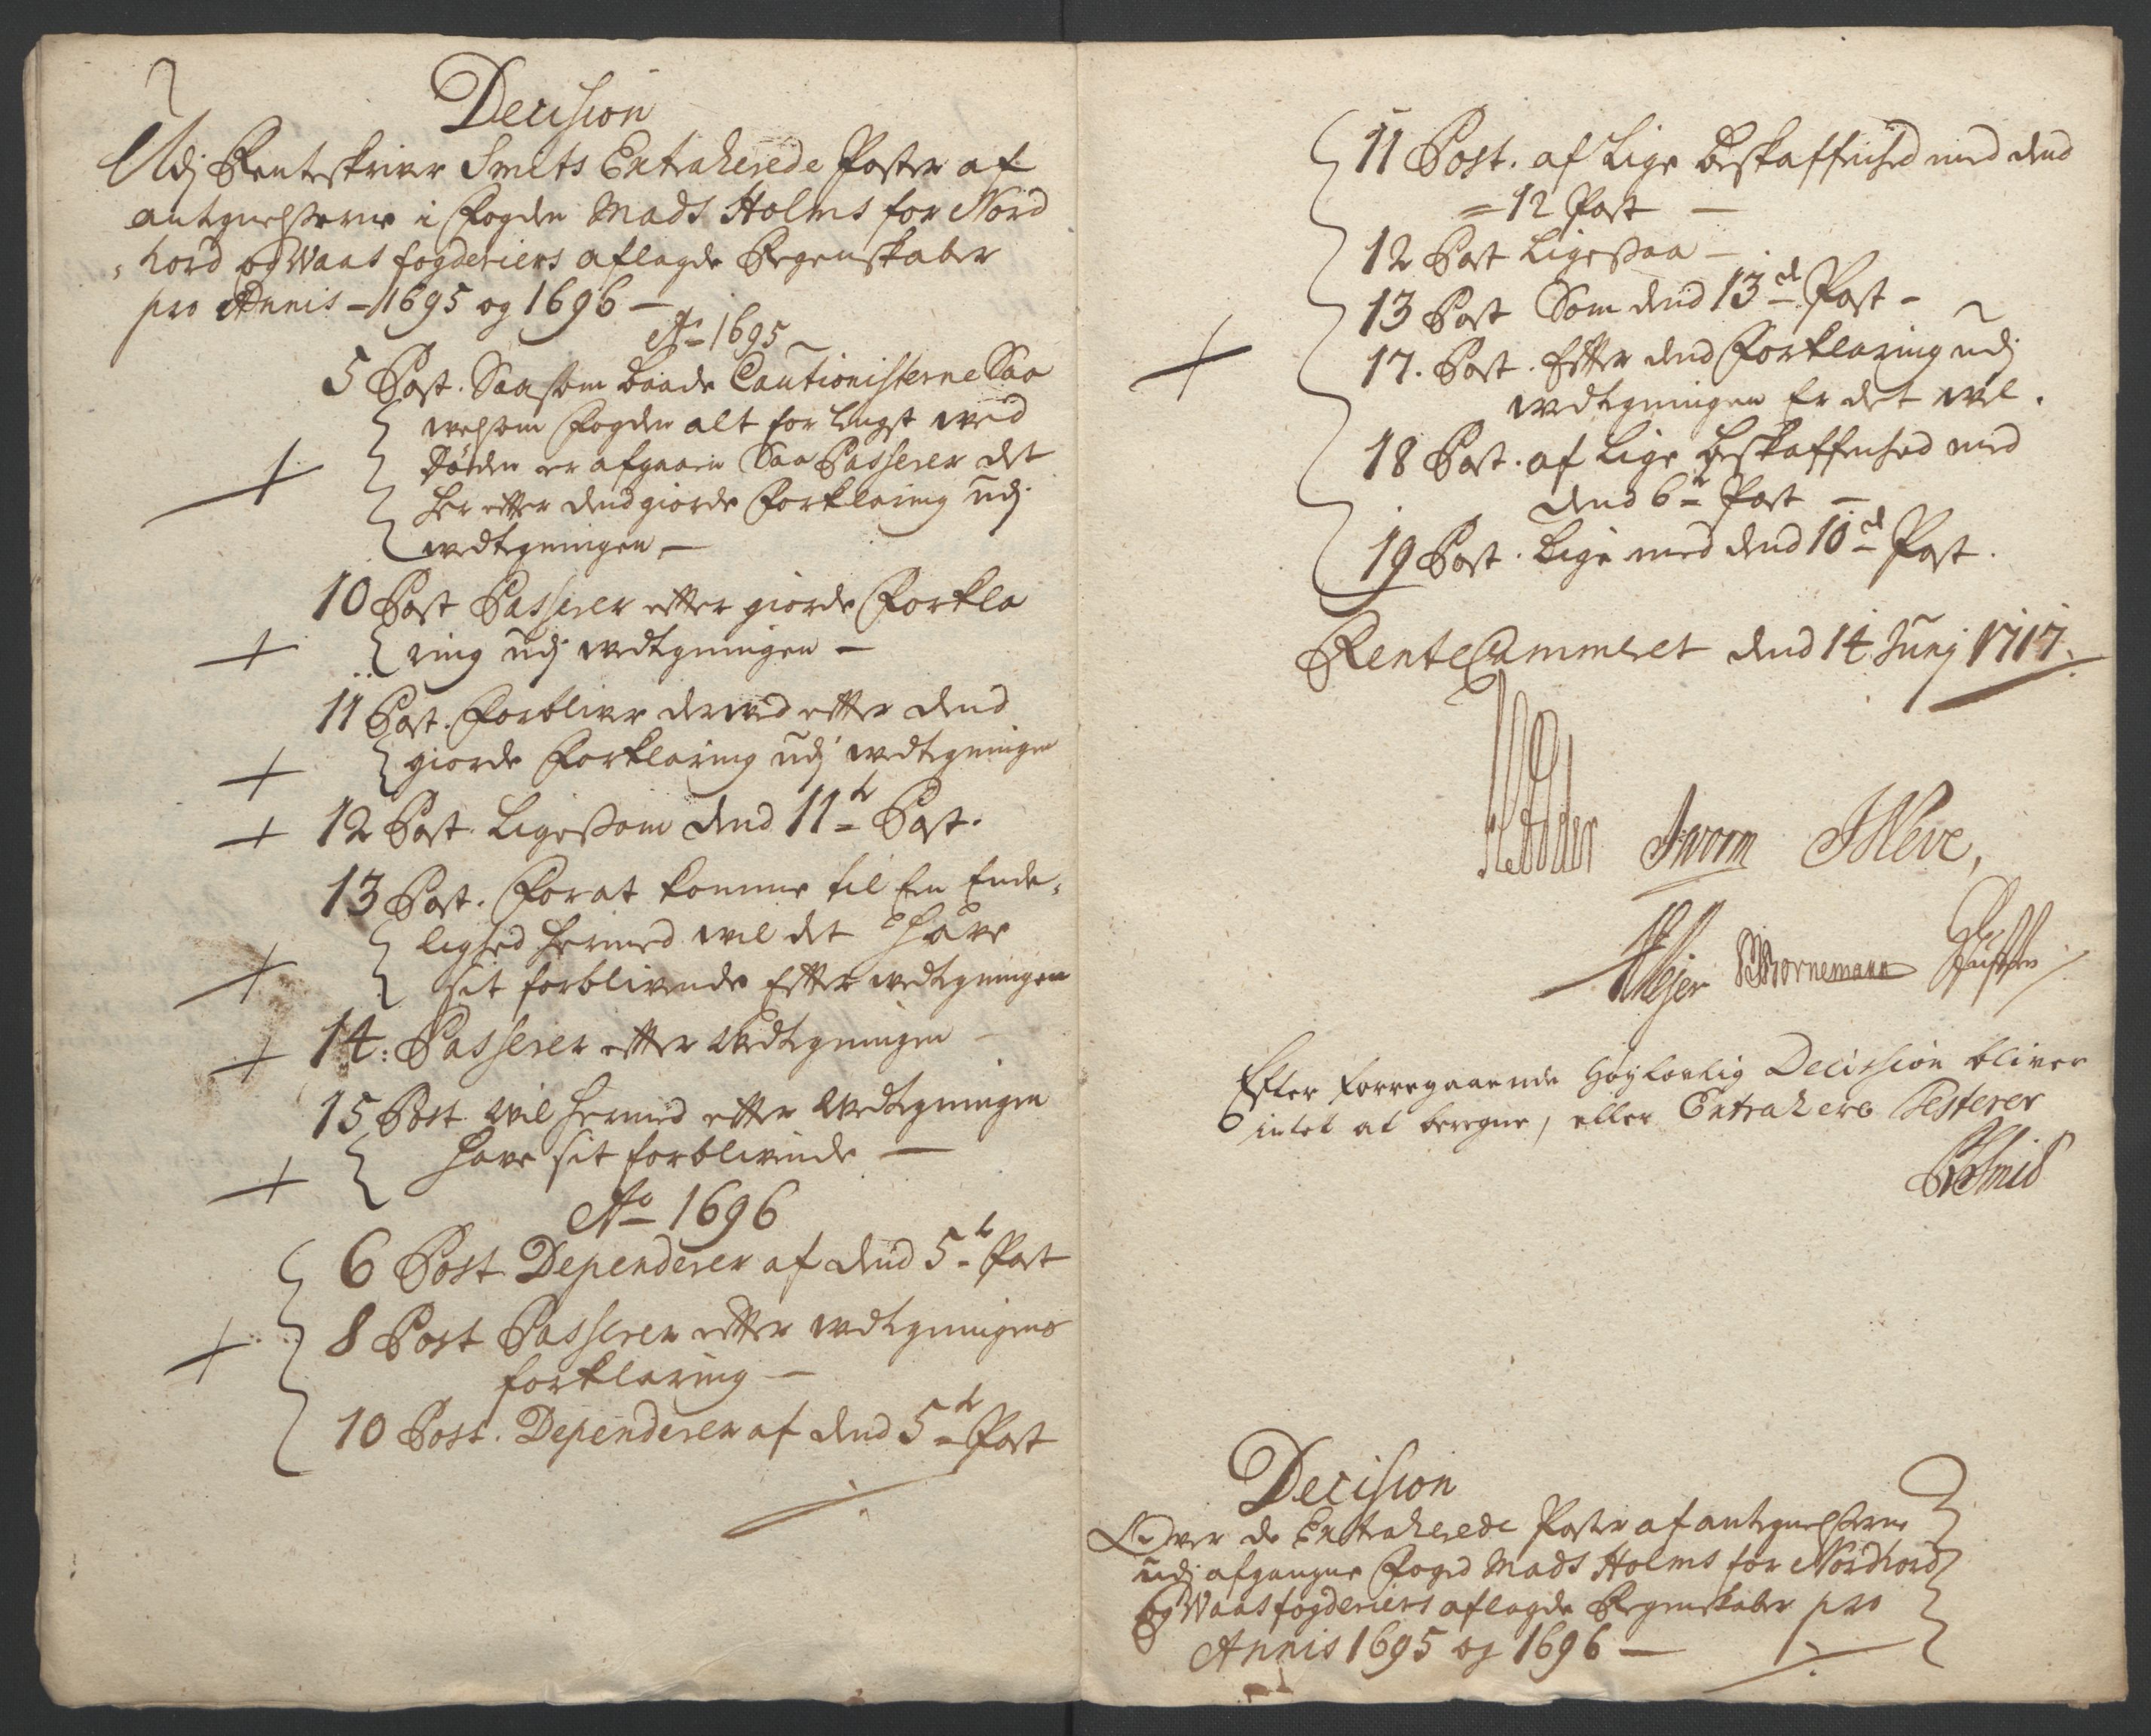 Decision
Udj Renteskriver Smits Extraherede Poster af
antegnelsserne i Fogden Mads Holms for Nord
hord og Waas fogderiers aflagde Regenskaber
pro Annis - 1695 og 1696 -
Ao 1695
5 Post. Saasom baade Cautionisterne Saa
velsom Fogden alt for lengst ved
Døden er afgaaen Saa Passerer det
her efter dend giorde Forklaring udj
vedtegningen -
10 Post Passerer efter giorde Forkla
ring udj vedtegningen -
11 Post. Forbliver derved efter dend
giorde Forklaring udj vedtegningen
12 Post. Ligessom dend 11te Post.
13 Post. For at komme til En Ende,
lighed hermed vil det have
sit forblivende Efter vedtegningen
14: Passerer efter Vedtegningen -
15 Post vil hermed efter Vedtegningen
have sit forblivende -
Ao 1696
6 Post Dependerer af dend 5te Post
8 Post Passerer efter vedtegningens
forklaring -
10 Post. Dependerer af dend 5te Post
11 Post. af Lige beskaffenhed med dend
= 12 Post -
12 Post Ligessaa -
13 Post Som dend 13de Post -
17. Post. Efter dend Forklaring udj
vedtegningen Er det vel.
18 Post. af Lige beskaffenhed med
dend 6te Post -
19 Post. Lige med dend 10de Post.
RenteCammeret dend 14 Junj 1717.
JWorm
Mejer Bornemann
Efter forregaaende Høylovlig Decission bliver
intet at beregne, eller Extrahere Resterer
Smid
Decision
Over de Extraherede Poster af antegnelsserne
udj afgangne Foged Mads Holms for Nordhord
og Waas fogderiers aflagde Regenskaber pro
Annis 1695 og 1696 -